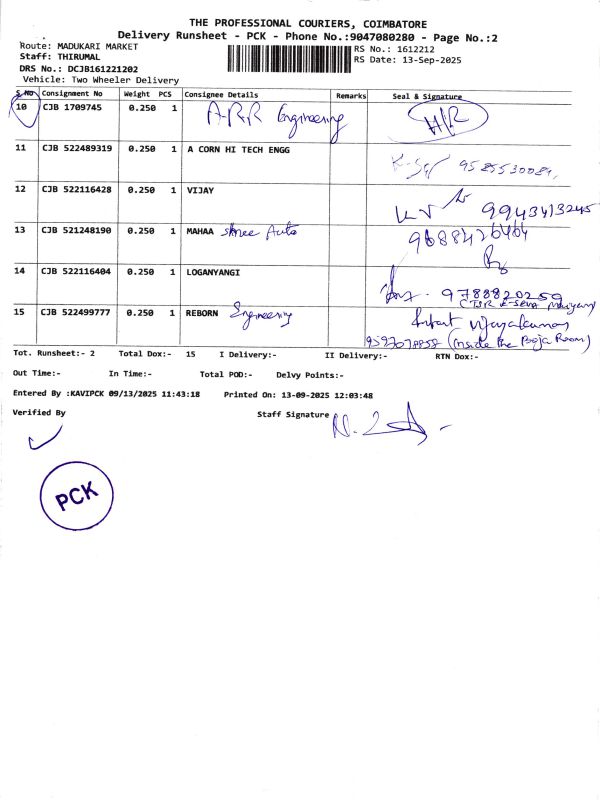 THE PROFESSIONAL COURIERS, COIMBATORE
Delivery Runsheet - PCK - Phone No.:9047080280 - Page No.:2
Route: MADUKARI MARKET
RS No.: 1612212
Staff: THIRUMAL
RS Date: 13-Sep-2025
DRS No.: DCJB161221202
Vehicle: Two Wheeler Delivery
S.No Consignment No Weight PCS Consignee Details Remarks Seal & Signature
10 CJB 1709745 0.250 1 ARR Engineering H/R
11 CJB 522489319 0.250 1 A CORN HI TECH ENGG
12 CJB 522116428 0.250 1 VIJAY 9943413245
13 CJB 521248190 0.250 1 MAHAA Shree Auto 9688426464
14 CJB 522116404 0.250 1 LOGANYANGI 9788820259
15 CJB 522499777 0.250 1 REBORN Engineering
(Inside the Pooja Room)
Tot. Runsheet:- 2 Total Dox:- 15 I Delivery:- II Delivery:- RTN Dox:-
Out Time:- In Time:- Total POD:- Delvy Points:-
Entered By :KAVIPCK 09/13/2025 11:43:18 Printed On: 13-09-2025 12:03:48
Verified By Staff Signature
PCK